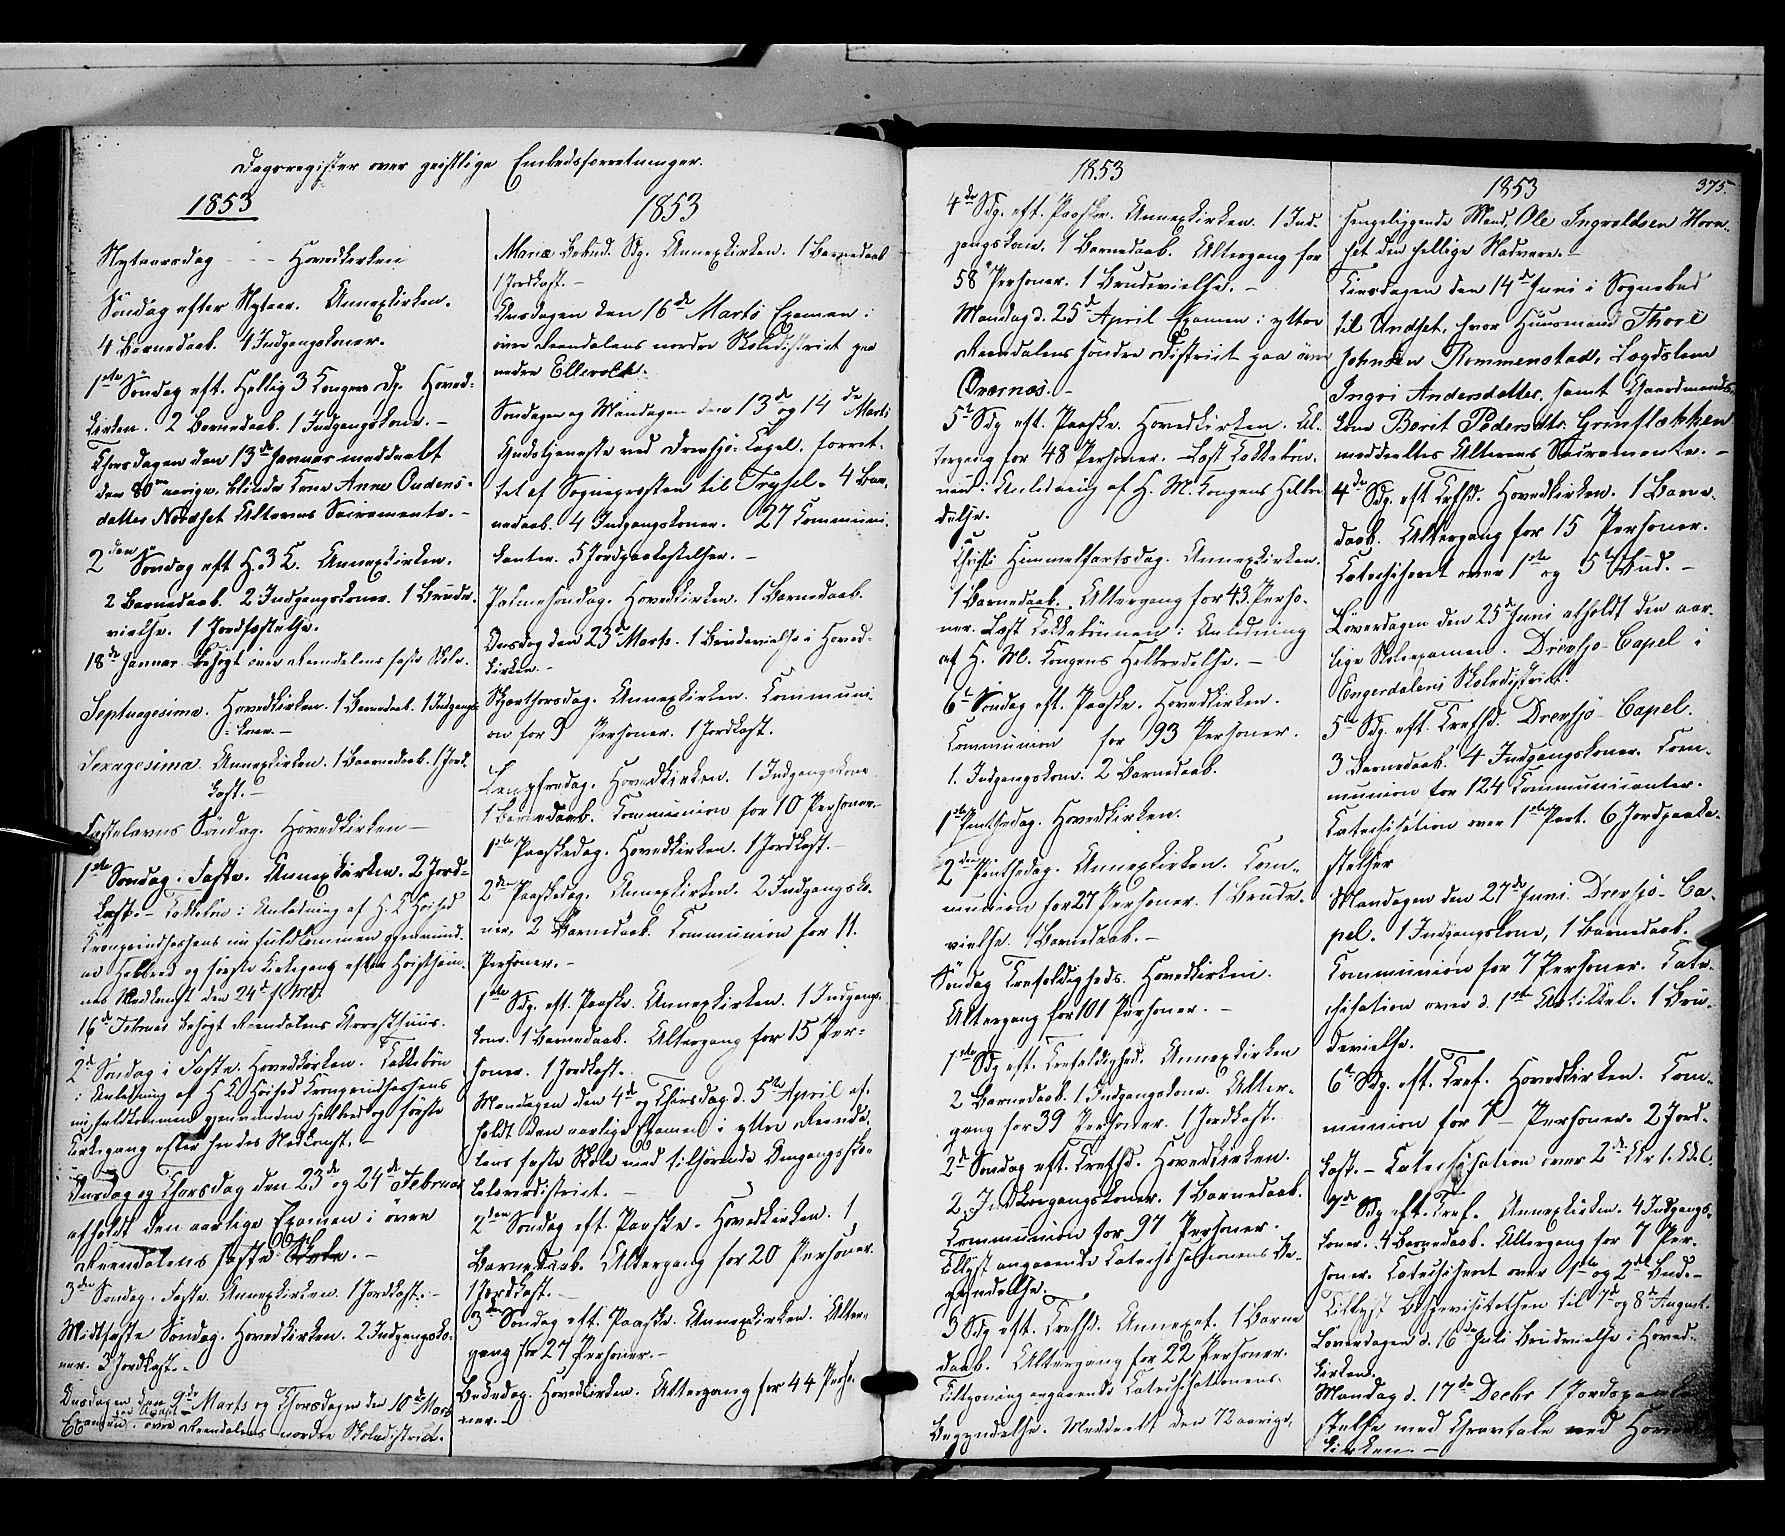 Dagsregister over geistlige Embedsforretninger.
1853
Nytaarsdag - - Hovedkirken
Söndag efter Nytaar. Annexkirken.
4 Barnedaab. 4 Indgangskoner.
1ste Söndag eft. Hellig 3 Kongers Dg. Hoved-
kirken. 2 Barnedaab. 1 Indgangskone. -
Thorsdagen den 13de Januar meddeelt
den 80 aarige, blinde Kone Anne Oudens-
datter Nordset Alterens Sacramente. -
2den Söndag eft H. 3 K. Annexkirken.
2 Barnedaab. 2 Indgangskoner. 1 Brude-
vielse. 1 Jordfæstelse.
18de Januar besögt övre Rendalens faste Skole.
Septuagesima. Hovedkirken. 1 Barnedaab. 1 Indgangs-
kone. -
Sexagesima. Annexkirken. 1 Baarnedaab. 1 Jord-
kast. -
Fastelavns Söndag. Hovedkirken -
1ste Söndag i Faste. Annexkirken. 2 Jord-
kast. - Takkebön i Anledning af H. K. Höihed
Kronprindsessens nu fuldkommen gjenvund-
ne Helbred og förste Kirkegang efter Höistsam-
mes Nedkomst den 24de f. Md.
16de Februar besögt Rendalens Arresthuus.
2d Söndag i Faste. Hovedkirken. Takkebön
i Anledning af H K Höihed Kronprindsessens
nu fuldkommen gjenvundne Helbred og förste
Kirkegang efter hendes Nedkomst. -
Onsdag og Thorsdag den 23de og 24de Februar
afholdt den aarlige Examen i övre
Rendalens faste Skole. -
3die Söndag i Faste. Annexkirken. 1 Jordkast. -
Midfaste Söndag. Hovedkirken. 2 Indgangsko-
ner. 3 Jordkast. -
Onsdagen den 9de Marts og Thorsdagen den 10de Marts
Examen i övre Rendalens nordre Skoledistrict.
1853
Mariæ Bebud. Dg. Annexkirken. 1 Barnedaab
1 Jordkast. -
Onsdagen den 16de Marts Examen i
övre Rendalens nordre Skoledistrict paa
nedre Ellevold.
Söndagen og Mandagen den 13de og 14de Marts
Gudstjeneste ved Drevsjö-Capel, forret-
tet af Sognepræsten til Trysil. 4 Bar-
nedaab. 4 Indgangskoner. 27 Communi-
kanter. 5 Jordpaakastelser. -
Palmesöndag. Hovedkirken. 1 Barnedaab.
Onsdag den 23de Marts. 1 Brudevielse i Hoved-
kirken. -
Skjærthorsdag. Annexkirken. Communi-
on for 9 Personer. 1 Jordkast.
Langfredag. Hovedkirken. 1 Indgangskone
1 Barnedaab. Communion for 10 Personer. -
1ste Paaskedag. Hovedkirken. 1 Jordkast. -
2den Paaskedag. Annexkirken. 2 Indgangsko-
ner, 2 Barnedaab. Communion for 11.
Personer. -
1ste Sdg. eft. Paaske. Annexkirken. 1 Indgangs-
kone. 1 Barnedaab. Altergang for 15 Per-
soner. 1 Jordkast. -
Mandagen den 4de og Thirsdag d. 5te April af-
holdt den aarlige Examen i yttre Renda-
lens faste Skole med tilhörende Omgangssko-
leleverdistrict. -
2den Söndag eft. Paaske. Hovedkirken. 1
Barnedaab. Altergang for 20 Personer.
1 Jordkast. -
3die Söndag eft. Paaske. Annexkirken. Alter-
gang for 27 Personer. -
Bededag. Hovedkirken. Altergang for 44 Perso-
ner. -
1853
4de Sdg. eft. Paaske. Annexkirken. 1 Ind-
gangskone. 1 Barnedaab. Altergang for
58 Personer. 1 Brudevielse. -
Mandag d. 25de April Examen i yttre
Rendalens söndre District paa
Qværnes. -
5te Sdg eft. Paaske. Hovedkirken. Al-
tergang for 48 Personer. Læst Takkebön-
nen i Anledning af H. M. Kongens Helbre-
delse.
Christi Himmelfartsdag. Annexkirken.
1 Barnedaab. Altergang for 43 Perso-
ner. Læst Takkebönnen i Anledning
af H. M. Kongens Helbredelse. -
6te Söndag eft. Paaske. Hovedkirken.
Communion for 93 Personer.
1. Indgangskone. 2 Barnedaab.
1ste Pintsedag. Hovedkirken.
2den Pintsedag. Annexkirken. Com-
munion for 27 Personer. 1 Brude-
vielse. 1 Barnedaab. -
Söndag Trefoldigheds. Hovedkirken.
Altergang for 101 Personer. -
1ste Sdg eft. Trefoldighed. Annexkirken
2 Barnedaab. 1 Indgangskone. Alter-
gang for 39 Personer. 1 Jordkast.
2de Söndag eft. Trefhd. Hovedkirken.
2 Indgangskoner. 1 Barnedaab.
Communion for 97 Personer.
Tillyst angaaende Catechisationens Be-
gyndelse.
3 Sdg eft. Trefhd. Annexet. 1 Barne
daab. Altergang for 22 Personer.
Tillysning angaaende Catechisationens
Begyndelse. Meddeelt den 72 aarige,
1853
375
sengeliggende Mand, Ole Ingvaldsen Horn-
set den hellige Nadvere. -
Tirsdagen den 14de Juni i Sognebud
til Undset, hvor Huusmand Thore
Johnsen Rommenstad, Lægdslem
Ingri Andersdatter, samt Gaardmands-
kone Berit Pedersdtr. Grinflækken
meddeeltes Alterens Sacramente. -
4de Sdg. eft Trefhd. Hovedkirken. 1 Barne-
daab. Altergang for 15 Personer.
Catechiseret over 1ste og 5te Bud. -
Löverdagen den 25de Juni afholdt den aar-
lige Skoleexamen i Drevsjö-Capel i
Engerdalens Skoledistrict.
5te Sdg. eft Trefhd. Drevsjö-Capel.
3 Barnedaab. 4 Indgangskoner. Com-
munion for 124 Communicanter.
Catechisation over 1ste Part. 6 Jordpaaka-
stelser
Mandagen den 27de Juni. Drevsjö-Ca-
pel. 1 Indgangskone, 1 Barnedaab.
Communion for 7 Personer. Cate-
chisation over d. 1ste Artikkel. 1 Bru-
devielse.
6te Sdg. eft. Tref. Hovedkirken. Com-
munion for 7 Personer. 2 Jord-
kast. - Catechisation over 2de
7de Sdg eft. Tref. Annexkirken. 4 Indgangs-
koner. 4 Barnedaab. Altergang for 7 Per-
soner. Catechiseret over 1ste og 2det Bud. -
Tillyst Bispevisitatsen til 7de og 8de August.
Löverdagen d. 16de Juli Brudevielse i Hoved-
kirken.
Mandag d. 17de Decbr 1 Jordspaaka-
stelse med Gravtale ved Hoved-
kirken. -